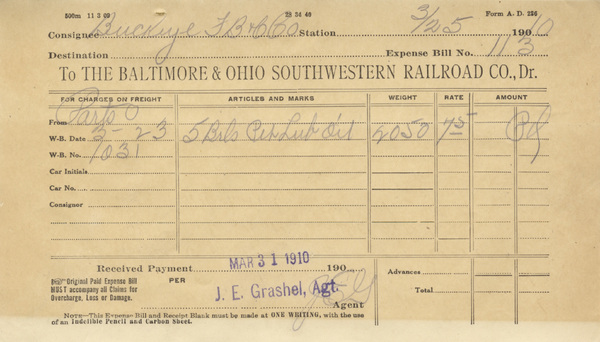 500m 11 3 09 23 34 40 Form A. D. 256
Consignee Buckeye F B & Co Station 3/25 1900
Destination Expense Bill No. 113
To THE BALTIMORE & OHIO SOUTHWESTERN RAILROAD CO., Dr.
FOR CHARGES ON FREIGHT ARTICLES AND MARKS WEIGHT RATE AMOUNT
From O
W-B. Date 3-23 5 Brls Lub Oil 2050 75
W-B. No. 1031
Car Initials
Car No.
Consignor
Received Payment MAR 31 1910 190 Advances
Original Paid Expense Bill PER
MUST accompany all Claims for J. E. Grashel, Agt. Total
Overcharge, Loss or Damage. Agent
NOTE—This Expense Bill and Receipt Blank must be made at ONE WRITING, with the use
of an Indelible Pencil and Carbon Sheet.